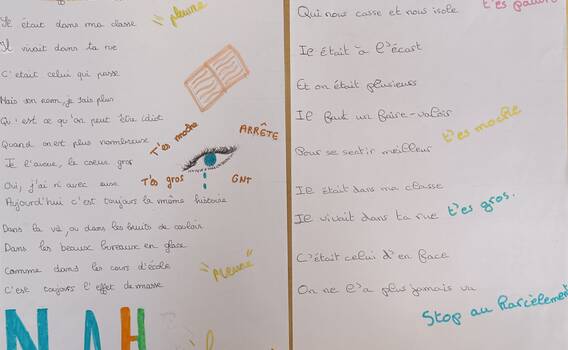 Il était dans ma classe
"pleure"
Il vivait dans ta rue
C'était celui qui passe
Mais son nom, je sais plus
Qu'est ce qu'on peut être idiot
Quand on est plus nombreux
T'es moche
ARRÊTE
Je l'avoue, le coeur gros
T'es gros
GNT
Oui, j'ai ri avec eux
Aujourd'hui c'est toujours la même histoire
Dans la vie, ou dans les bruits de couloir
Dans les beaux bureaux en glace
"pleure"
Comme dans les cours d'école
C'est toujours l'effet de masse
NAH
Qui nous casse et nous isole
Il était à l'écart
Et on était plusieurs
Il faut un faire-valoir
t'es moche
Pour se sentir meilleur
Il était dans ma classe
Il vivait dans ta rue
t'es gros.
C'était celui d'en face
On ne l'a plus jamais vu
Stop au Harcèlement